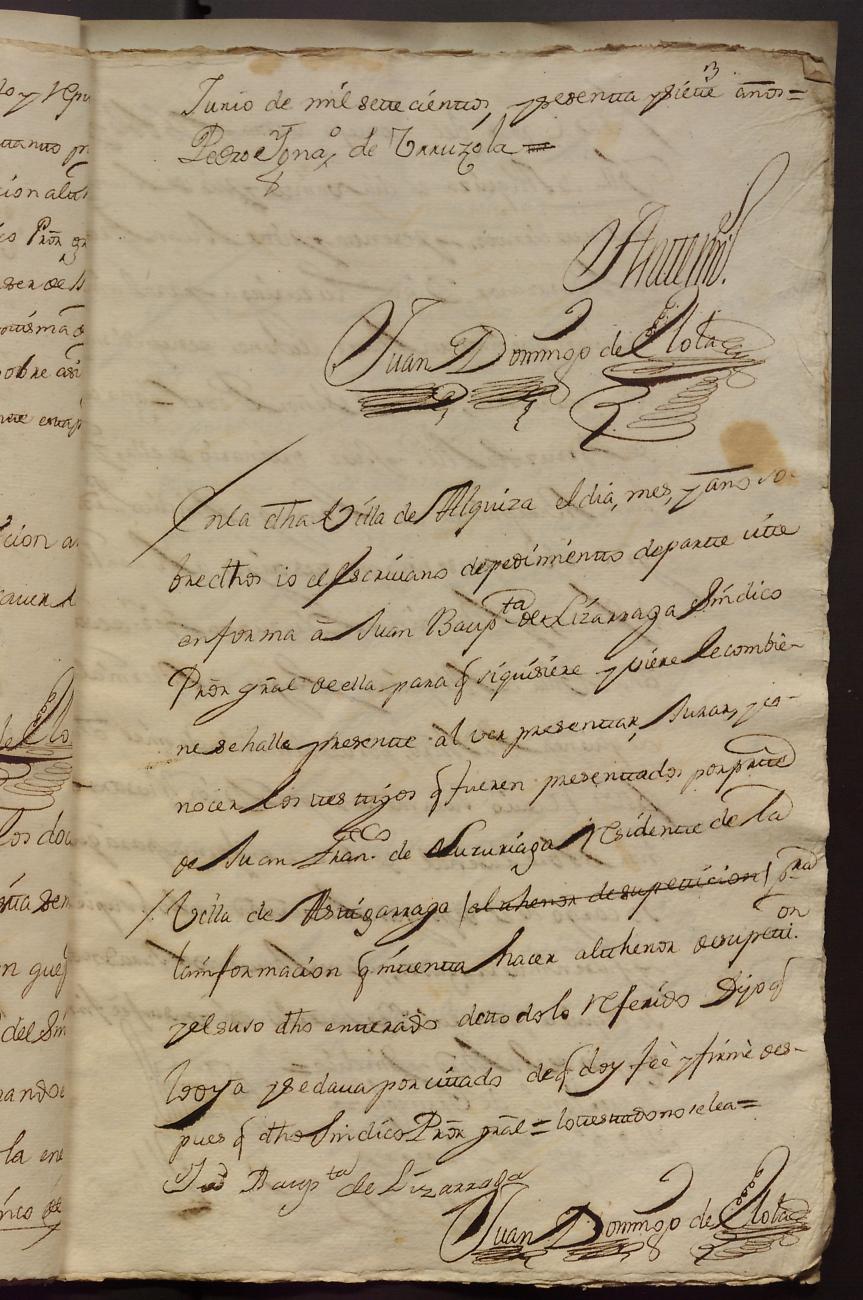 Junio de mil sete cientos, y sesenta y siete años=
Pedro Ygna.º de Urruzola=
Ante mi.
Juan Domingo de Llota
En la dha Villa de Alquiza el dia, mes, y año so-
bre dhos io el Escriuano de pedimiento de parte cite
en forma â Juan Baupta de Lizarraga Sindico
Pror gral de ella para q si quisiere y viere le combie-
ne se halle presente al ver presentar, Jurar, y co-
nocer los testigos q fueren presentados por parte
de Juan Franco. de Residente de la
Villa de Astigarraga /al thenor de su peticion/ pra
la informacion q intenta hacer al thenor de su petti.on
y el suso dho enterado de todo lo referido Dijo q
lo oya y se daua por citado de q doy feê y firmê des-
pues q dho Sindico Pror gral= lo testado no se lea=
Jud Baupta de Lizarraga
Juan Domingo de Llota